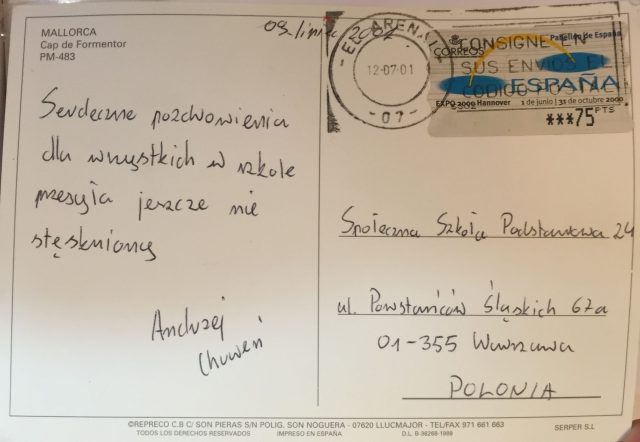 MALLORCA
Cap de Formentor
PM-483
2001
EL ARENAL
12-07-01
- 07 -
CORREOS
CONSIGNE EN
SUS ENVIOS EL
CODIGO POSTAL
Pabellón de España
ESPAÑA
EXPO 2000 Hannover 1 de junio | 31 de octubre 2000
***75 PTS
Serdeczne pozdrowienia
dla wszystkich w szkole
przesyła jeszcze nie
stęskniony
Andrzej
Społeczna Szkoła Podstawowa 24
ul. Powstańców Śląskich 67a
01-355 Warszawa
POLONIA
©REPRECO C.B C/ SON PIERAS S/N POLIG. SON NOGUERA - 07620 LLUCMAJOR - TEL/FAX 971 661 663
TODOS LOS DERECHOS RESERVADOS IMPRESO EN ESPAÑA D.L. B-36268-1989 SERPER S.L